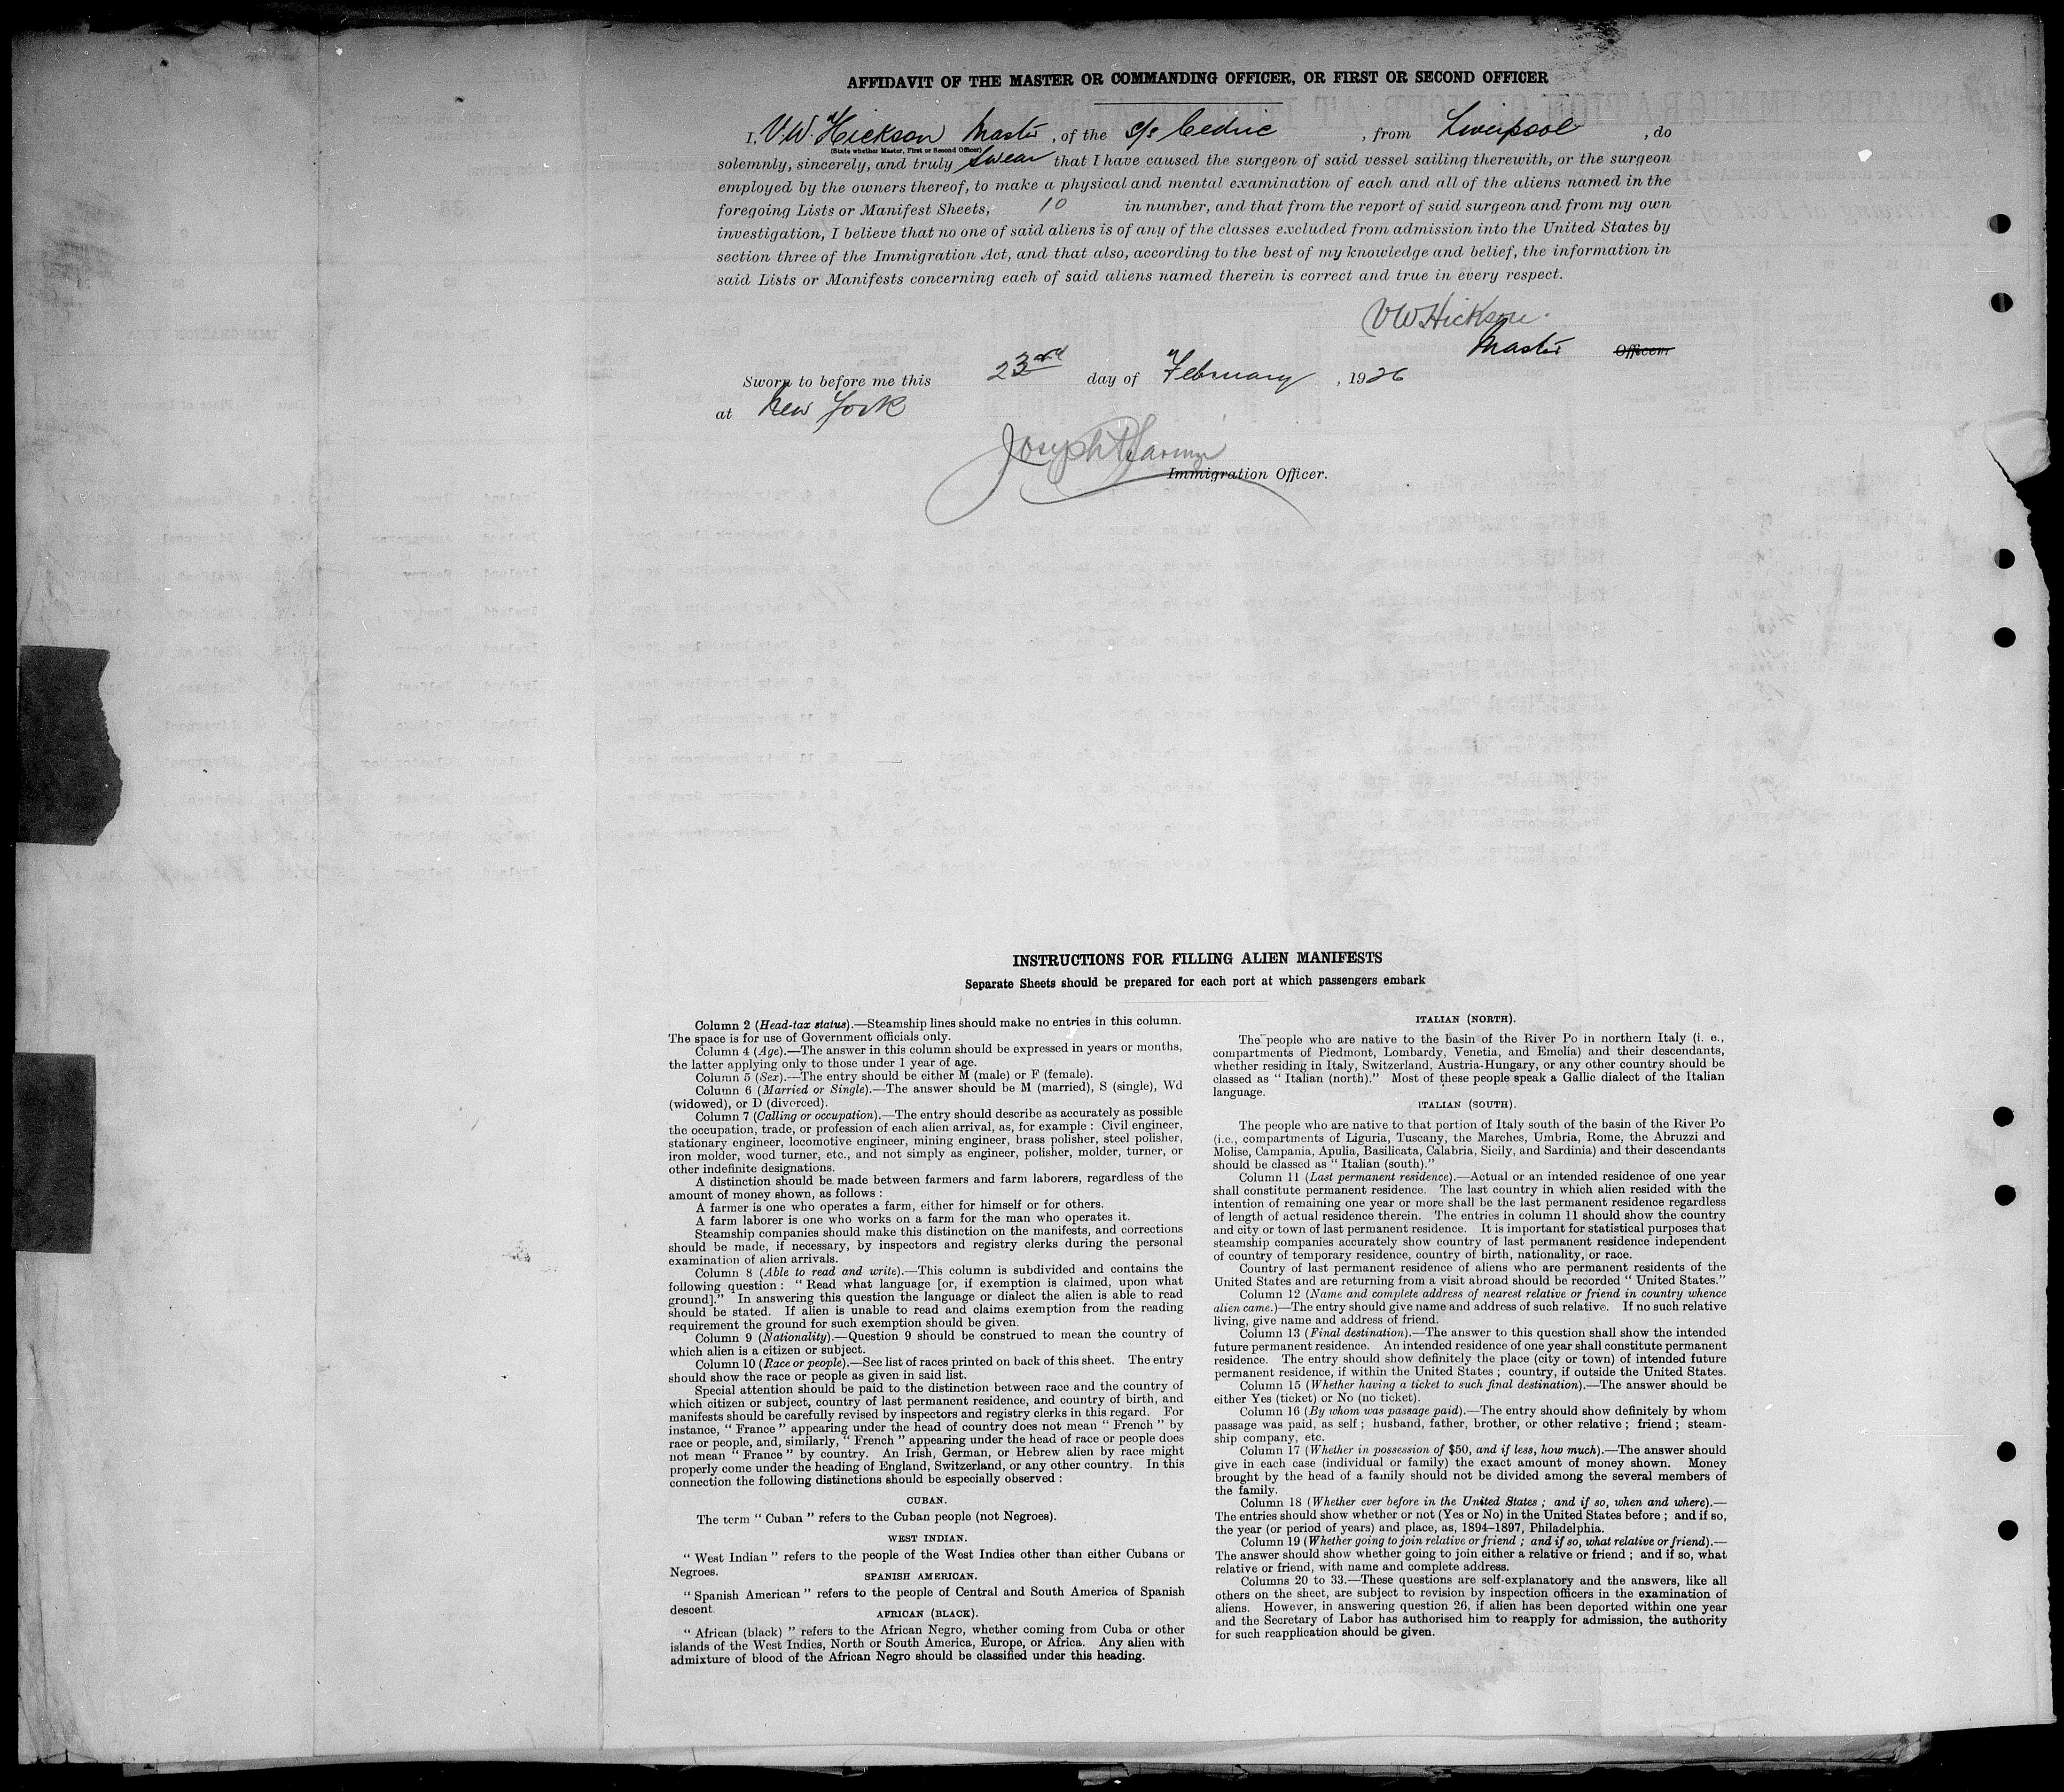 AFFIDAVIT OF THE MASTER OR COMMANDING OFFICER, OR FIRST OR SECOND OFFICER
I, V.W. Hickson Master, of the S/S Cedric, from Liverpool, do
(State whether Master, First or Second Officer)
solemnly, sincerely, and truly Swear that I have caused the surgeon of said vessel sailing therewith, or the surgeon
employed by the owners thereof, to make a physical and mental examination of each and all of the aliens named in the
foregoing Lists or Manifest Sheets, 10 in number, and that from the report of said surgeon and from my own
investigation, I believe that no one of said aliens is of any of the classes excluded from admission into the United States by
section three of the Immigration Act, and that also, according to the best of my knowledge and belief, the information in
said Lists or Manifests concerning each of said aliens named therein is correct and true in every respect.
VW Hickson.
Master Officer.
Sworn to before me this 23rd day of February, 1926
at New York
Joseph
Immigration Officer.
INSTRUCTIONS FOR FILLING ALIEN MANIFESTS
Separate Sheets should be prepared for each port at which passengers embark
Column 2 (Head-tax status).—Steamship lines should make no entries in this column.
The space is for use of Government officials only.
Column 4 (Age).—The answer in this column should be expressed in years or months,
the latter applying only to those under 1 year of age.
Column 5 (Sex).—The entry should be either M (male) or F (female).
Column 6 (Married or Single).—The answer should be M (married), S (single), Wd
(widowed), or D (divorced).
Column 7 (Calling or occupation).—The entry should describe as accurately as possible
the occupation, trade, or profession of each alien arrival, as, for example : Civil engineer,
stationary engineer, locomotive engineer, mining engineer, brass polisher, steel polisher,
iron molder, wood turner, etc., and not simply as engineer, polisher, molder, turner, or
other indefinite designations.
A distinction should be made between farmers and farm laborers, regardless of the
amount of money shown, as follows :
A farmer is one who operates a farm, either for himself or for others.
A farm laborer is one who works on a farm for the man who operates it.
Steamship companies should make this distinction on the manifests, and corrections
should be made, if necessary, by inspectors and registry clerks during the personal
examination of alien arrivals.
Column 8 (Able to read and write).—This column is subdivided and contains the
following question : " Read what language [or, if exemption is claimed, upon what
ground]." In answering this question the language or dialect the alien is able to read
should be stated. If alien is unable to read and claims exemption from the reading
requirement the ground for such exemption should be given.
Column 9 (Nationality).—Question 9 should be construed to mean the country of
which alien is a citizen or subject.
Column 10 (Race or people).—See list of races printed on back of this sheet. The entry
should show the race or people as given in said list.
Special attention should be paid to the distinction between race and the country of
which citizen or subject, country of last permanent residence, and country of birth, and
manifests should be carefully revised by inspectors and registry clerks in this regard. For
instance, " France " appearing under the head of country does not mean " French " by
race or people, and, similarly, " French " appearing under the head of race or people does
not mean " France " by country. An Irish, German, or Hebrew alien by race might
properly come under the heading of England, Switzerland, or any other country. In this
connection the following distinctions should be especially observed :
CUBAN.
The term " Cuban " refers to the Cuban people (not Negroes).
WEST INDIAN.
" West Indian " refers to the people of the West Indies other than either Cubans or
Negroes.
SPANISH AMERICAN.
" Spanish American " refers to the people of Central and South America of Spanish
descent.
AFRICAN (BLACK).
" African (black) " refers to the African Negro, whether coming from Cuba or other
islands of the West Indies, North or South America, Europe, or Africa. Any alien with
admixture of blood of the African Negro should be classified under this heading.
ITALIAN (NORTH).
The people who are native to the basin of the River Po in northern Italy (i. e.,
compartments of Piedmont, Lombardy, Venetia, and Emelia) and their descendants,
whether residing in Italy, Switzerland, Austria-Hungary, or any other country should be
classed as " Italian (north)." Most of these people speak a Gallic dialect of the Italian
language.
ITALIAN (SOUTH).
The people who are native to that portion of Italy south of the basin of the River Po
(i.e., compartments of Liguria, Tuscany, the Marches, Umbria, Rome, the Abruzzi and
Molise, Campania, Apulia, Basilicata, Calabria, Sicily, and Sardinia) and their descendants
should be classed as " Italian (south)."
Column 11 (Last permanent residence).—Actual or an intended residence of one year
shall constitute permanent residence. The last country in which alien resided with the
intention of remaining one year or more shall be the last permanent residence regardless
of length of actual residence therein. The entries in column 11 should show the country
and city or town of last permanent residence. It is important for statistical purposes that
steamship companies accurately show country of last permanent residence independent
of country of temporary residence, country of birth, nationality, or race.
Country of last permanent residence of aliens who are permanent residents of the
United States and are returning from a visit abroad should be recorded " United States."
Column 12 (Name and complete address of nearest relative or friend in country whence
alien came.)—The entry should give name and address of such relative. If no such relative
living, give name and address of friend.
Column 13 (Final destination).—The answer to this question shall show the intended
future permanent residence. An intended residence of one year shall constitute permanent
residence. The entry should show definitely the place (city or town) of intended future
permanent residence, if within the United States ; country, if outside the United States.
Column 15 (Whether having a ticket to such final destination).—The answer should be
either Yes (ticket) or No (no ticket).
Column 16 (By whom was passage paid).—The entry should show definitely by whom
passage was paid, as self ; husband, father, brother, or other relative ; friend ; steam-
ship company, etc.
Column 17 (Whether in possession of $50, and if less, how much).—The answer should
give in each case (individual or family) the exact amount of money shown. Money
brought by the head of a family should not be divided among the several members of
the family.
Column 18 (Whether ever before in the United States ; and if so, when and where).—
The entries should show whether or not (Yes or No) in the United States before ; and if so,
the year (or period of years) and place, as, 1894–1897, Philadelphia.
Column 19 (Whether going to join relative or friend ; and if so, what relative or friend).—
The answer should show whether going to join either a relative or friend ; and if so, what
relative or friend, with name and complete address.
Columns 20 to 33.—These questions are self-explanatory and the answers, like all
others on the sheet, are subject to revision by inspection officers in the examination of
aliens. However, in answering question 26, if alien has been deported within one year
and the Secretary of Labor has authorised him to reapply for admission, the authority
for such reapplication should be given.